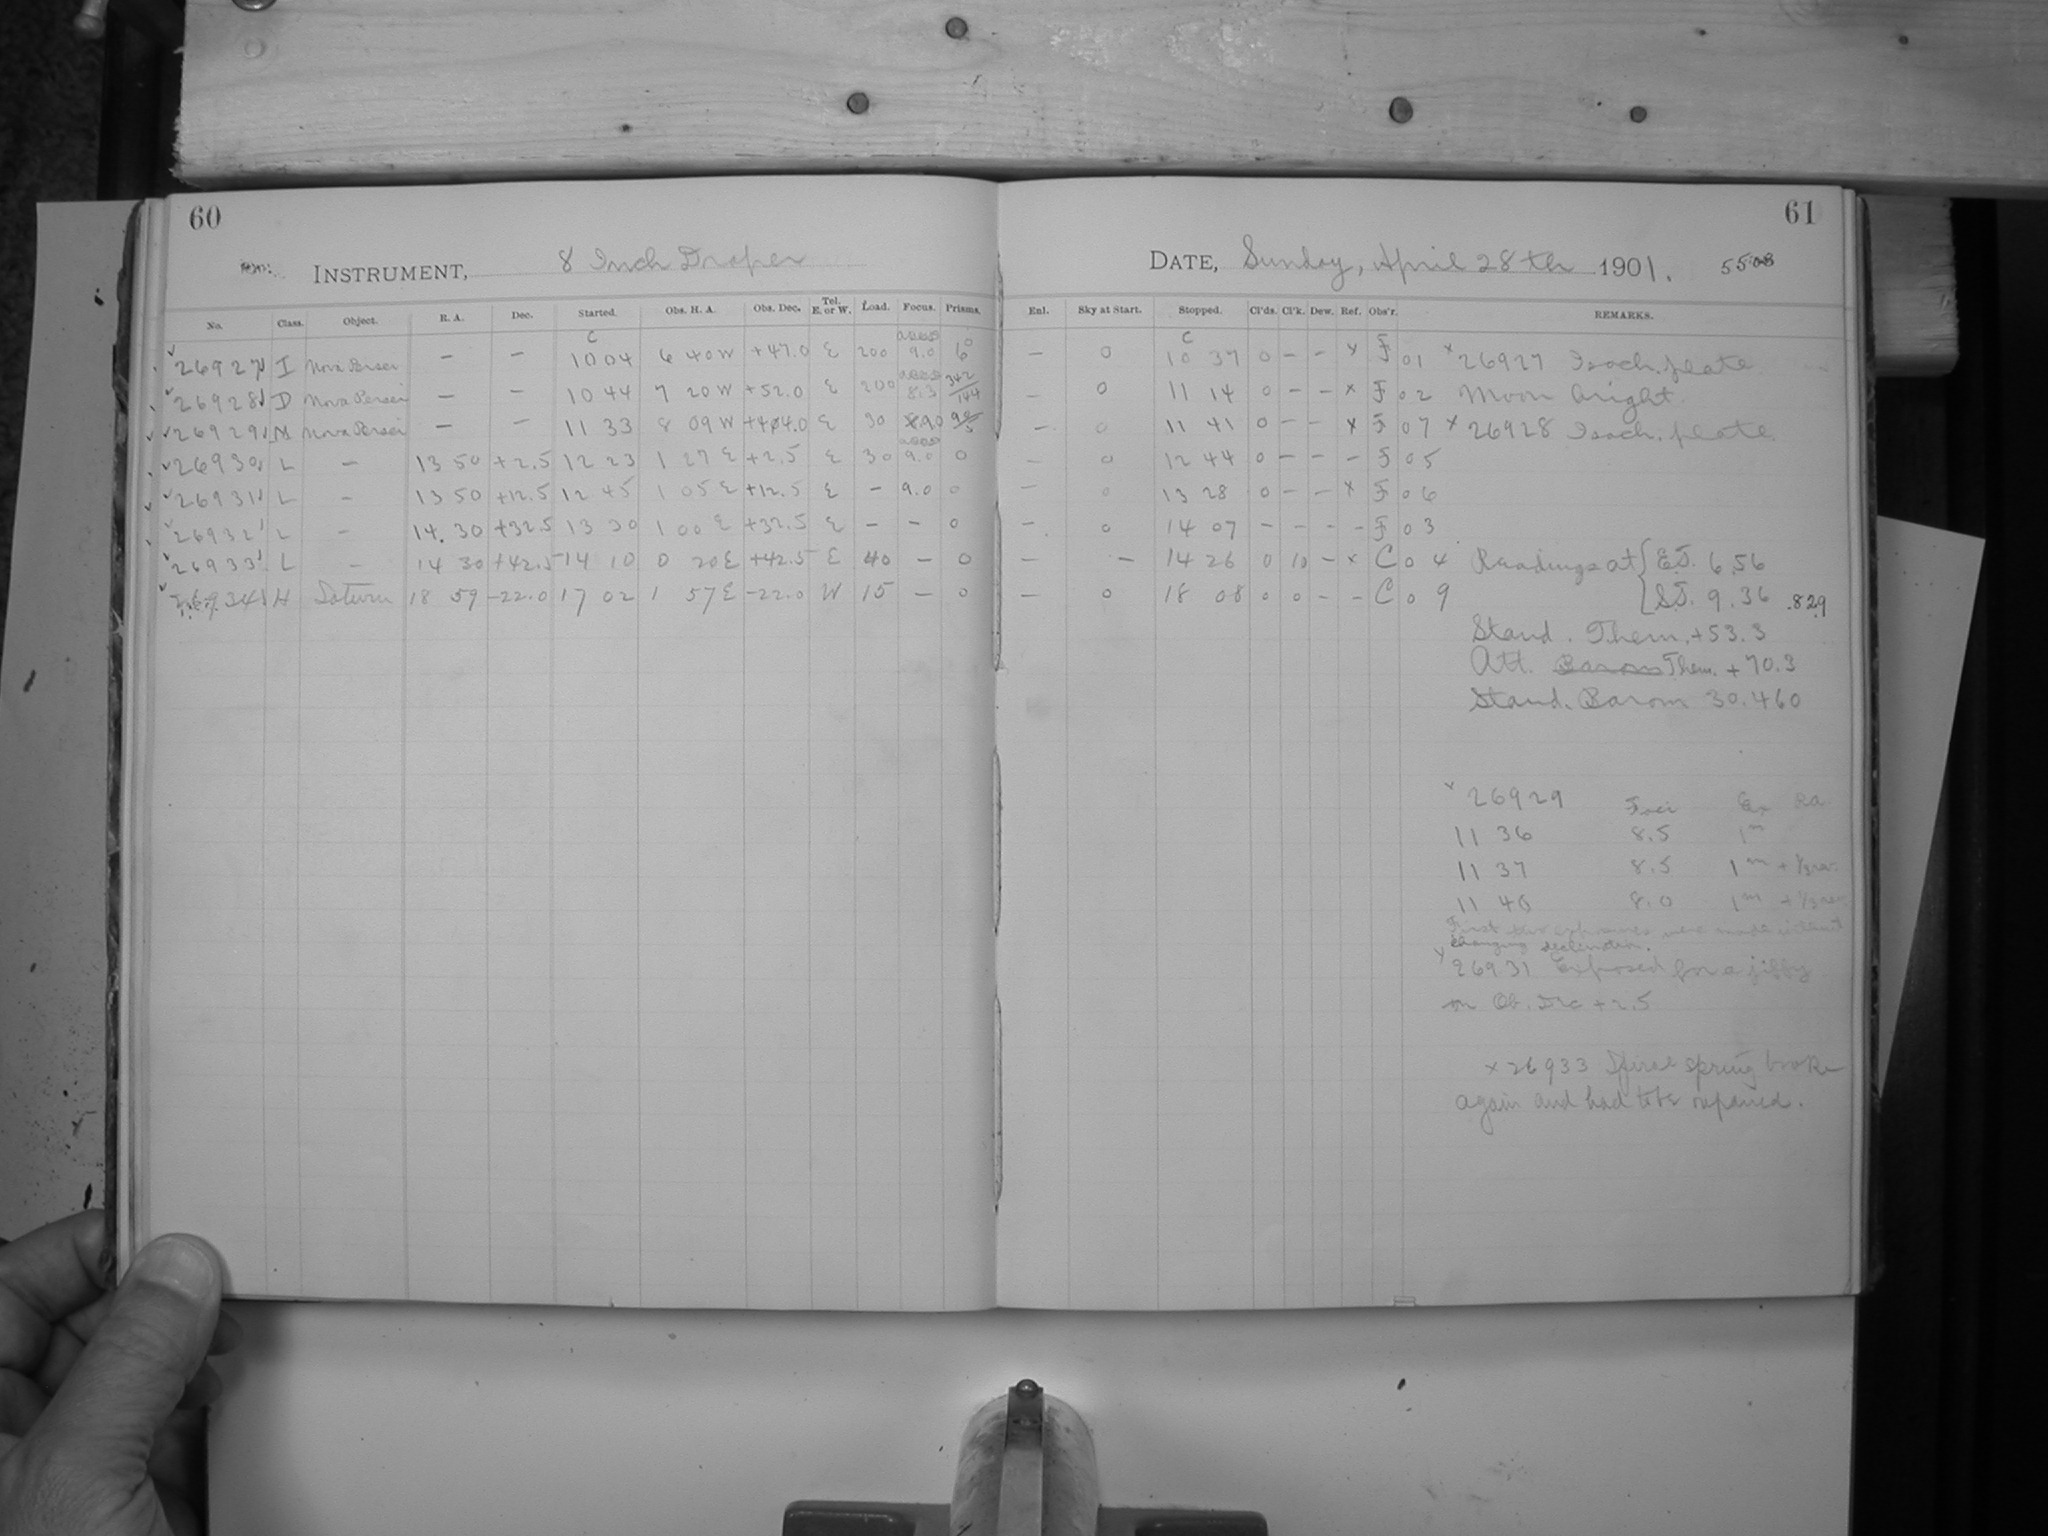 60
INSTRUMENT, 8 Inch Draper
No. Class. Object. R. A. Dec. Started. Obs. H. A. Obs. Dec. Tel. E. or W. Load. Focus. Prisms.
26927 I Nova Persei — — 10 04 6 40 W +47.0 E 200 9.0
26928 D Nova Persei — — 10 44 7 20 W +52.0 E 200 8.3 342/144
26929 Nova Persei — — 11 33 8 09 W E 30 9.0
26930 L — 13 50 +2.5 12 23 1 27 E +2.5 E 30 9.0 0
26931 L — 13 50 +12.5 12 45 1 05 E +12.5 E — 9.0 0
26932 L — 14.30 +32.5 13 30 1 00 E +32.5 E — — 0
26933 L — 14 30 +42.5 14 10 0 20 E +42.5 E 40 — 0
26934 H Saturn 18 59 -22.0 17 02 1 57 E -22.0 W 15 — 0
61
DATE, Sunday, April 28th 1901. 5508
Enl. Sky at Start. Stopped. Cl'ds. Cl'k. Dew. Ref. Obs'r. REMARKS.
— 0 10 37 0 — — x F 01 x 26927 Isoch. plate
— 0 11 14 0 — — x F 02 Moon bright.
— 0 11 41 0 — — x F 07 x 26928 Isoch. plate.
— 0 12 44 0 — — — F 05
— 0 13 28 0 — — x F 06
— 0 14 07 — — — — F 03
— — 14 26 0 10 — x C 04 Readings at E.T. 6.56
— 0 18 08 0 0 — — C 09 S.T. 9.36 .829
Stand. Therm. +53.3
Att. Barom Therm. +70.3
Stand. Barom 30.460
x 26929 Foci Ex Ra
11 36 8.5 1m
11 37 8.5 1m + 1/3 rev.
11 40 8.0 1m + 1/3 rev.
First two exposures were made without
changing declination.
x 26931 Exposed for a jiffy
on Ob. Dec +2.5
x 26933 spring broke
again and had to be repaired.